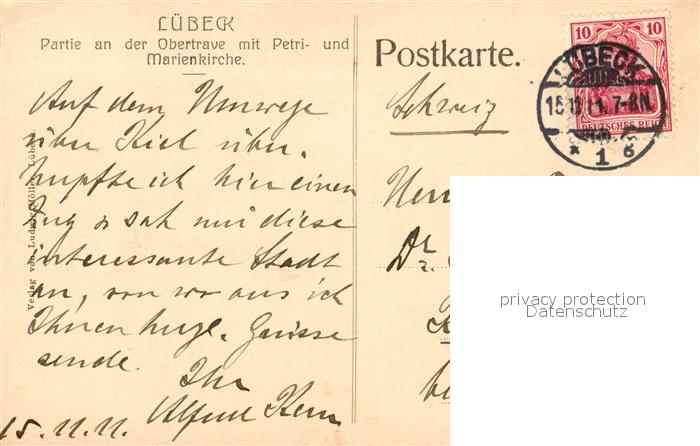 LÜBECK
Partie an der Obertrave mit Petri- und
Marienkirche.
Postkarte.
10 10
DEUTSCHES REICH
LÜBECK
15.11.11. 7-8N.
* 1 g
Schweiz
Auf dem Umwege
über Kiel über-
hupfte ich hier einen
Zug & sah mir diese
interessante Stadt
an, von wo aus ich
Ihnen hrzl. Grüsse
sende.
Ihr
Alfred Kern
15.11.11.
Verlag von Ludwig Möller, Lübeck
Herrn
Dr.
privacy protection
Datenschutz